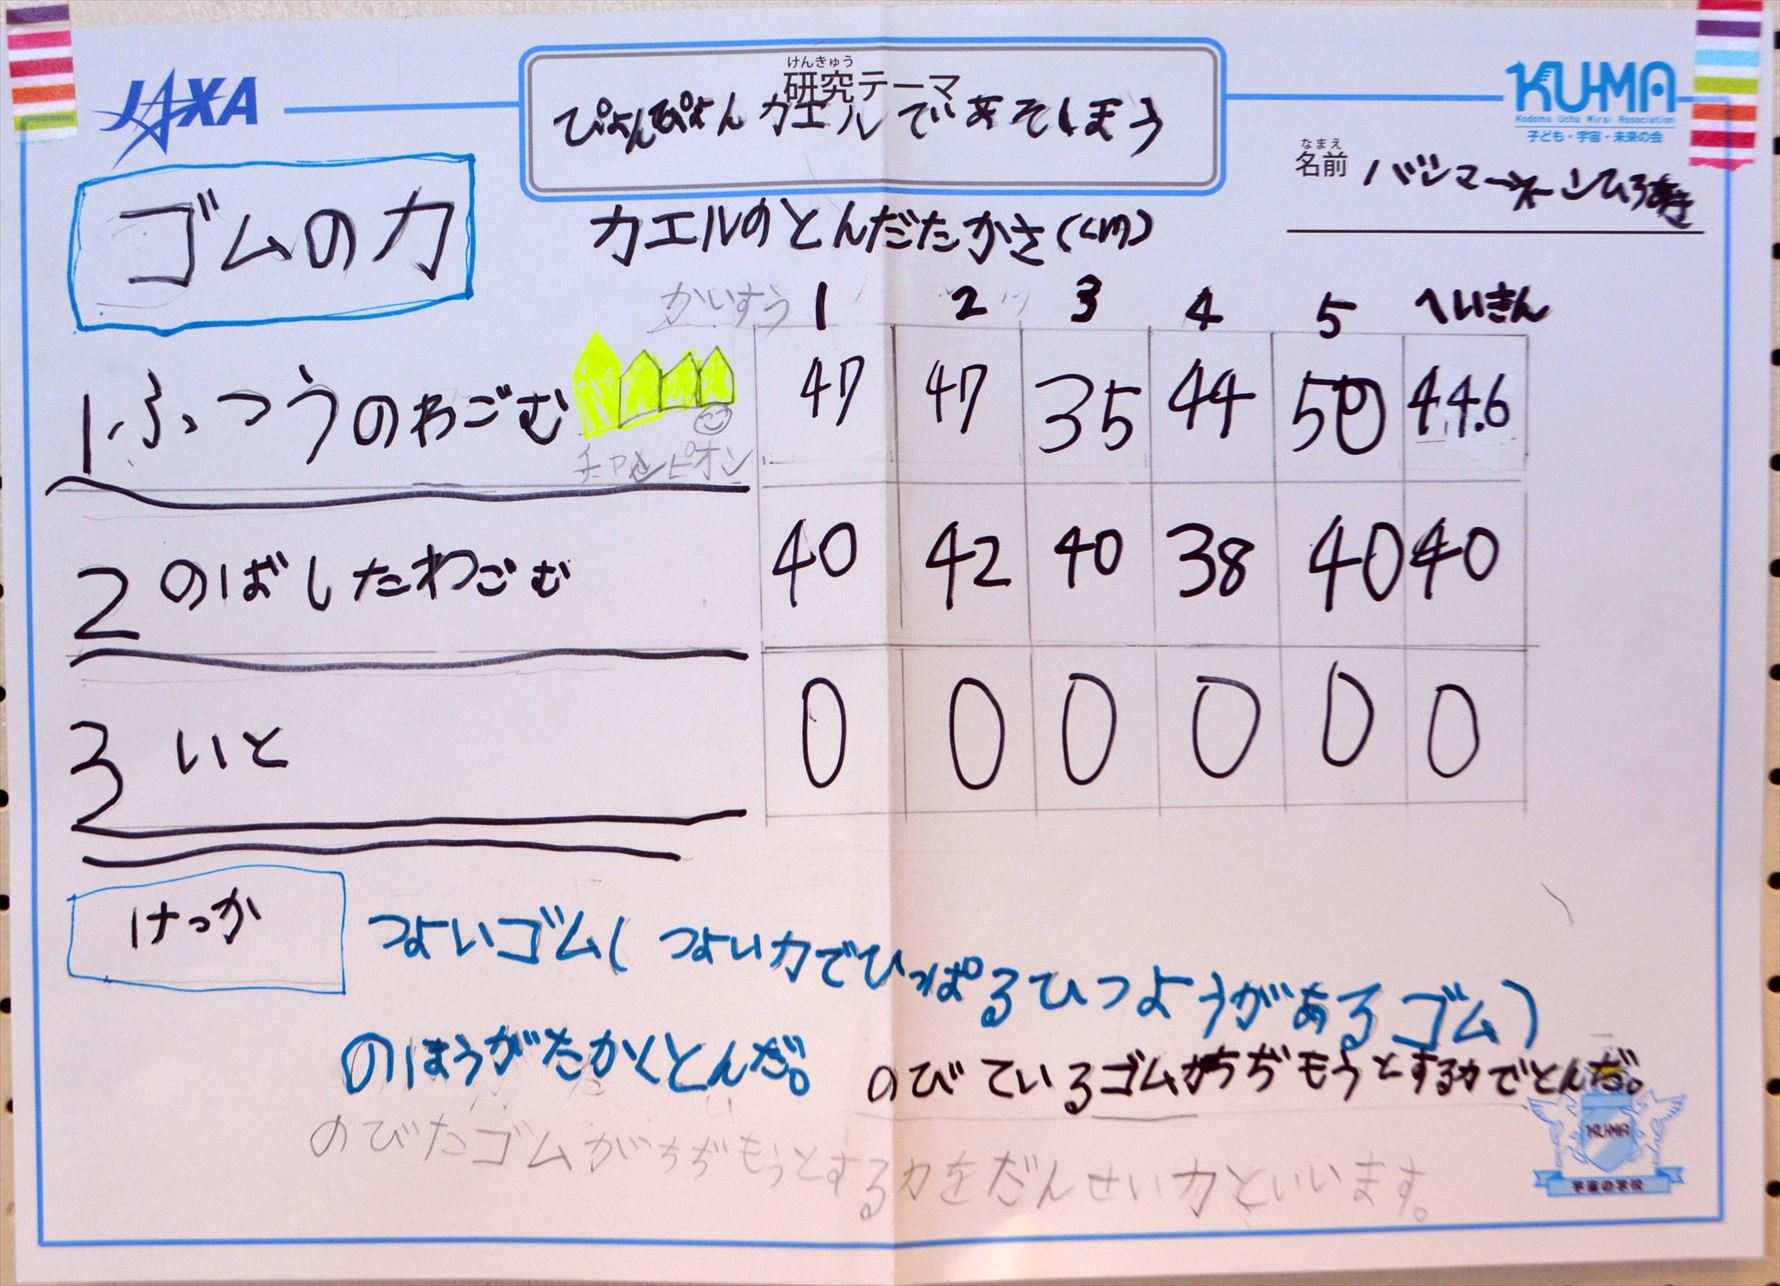 JAXA
けんきゅう
研究テーマ
ぴょんぴょんカエルであそしまう
KU-MA
Kodomo Uchu Mirai Association
子ども・宇宙・未来の会
なまえ
名前
ゴムの力
カエルのとんだたかさ(cm)
かいすう 1 2 3 4 5 へいきん
1.ふつうのわごむ 47 47 35 44 50 44.6
チャンピオン
2 のばしたわごむ 40 42 40 38 40 40
3 いと 0 0 0 0 0 0
けっか
つよいゴム(つよい力でひっぱるひつようがあるゴム)
のほうがたかくとんだ。
のびているゴムがちぢもうとする力でとんだ。
のびたゴムがちぢもうとする力をだんせい力といいます。
KU-MA
宇宙の学校